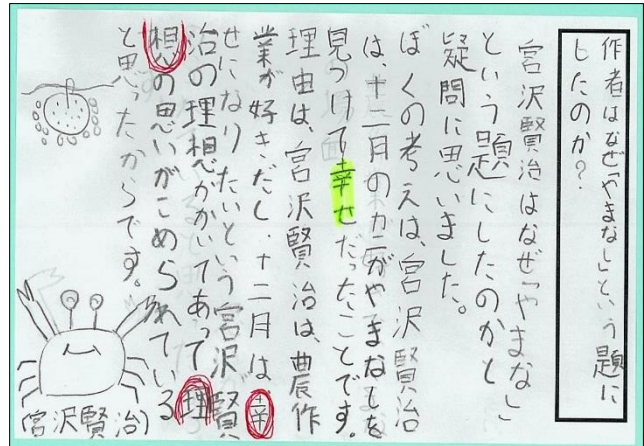 作者はなぜ「やまなし」という題に
したのか？
宮沢賢治はなぜ「やまなし」
という題にしたのかと
疑問に思いました。
ぼくの考えは、宮沢賢治
は、十二月のカニがやまなしを
見つけて幸せだったことです。
理由は、宮沢賢治は、農作
業が好きだし、十二月は幸
せになりたいという宮沢賢
治の理想がかいてあって理
想の思いがこめられている
と思ったからです。
(宮沢賢治)